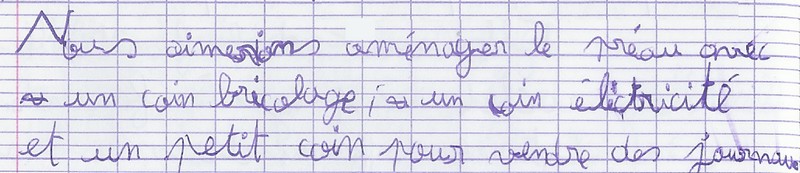 Nous aimerions aménager le préau avec
un coin bricolage, un coin éléctricité
et un petit coin pour vendre des journaux